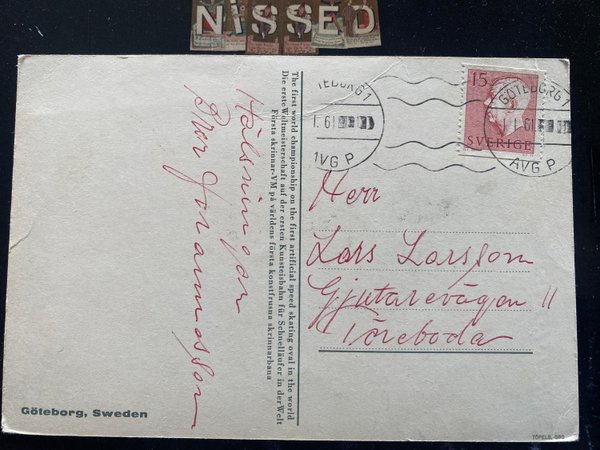 NiSSED
The first world championship on the first artificial speed skating oval in the world
Die erste Weltmeisterschaft auf der ersten Kunsteisbahn für Schnelläufer in der Welt
Första skrinnar-VM på världens första konstfrusna skrinnarbana
Hälsningar
Johannesson
Göteborg, Sweden
15
SVERIGE
TEBORG 1
1. 61
AVG P
GÖTEBORG 1
1. 61
AVG P
Herr
Lars Larsson
Gjutarevägen 11
Töreboda